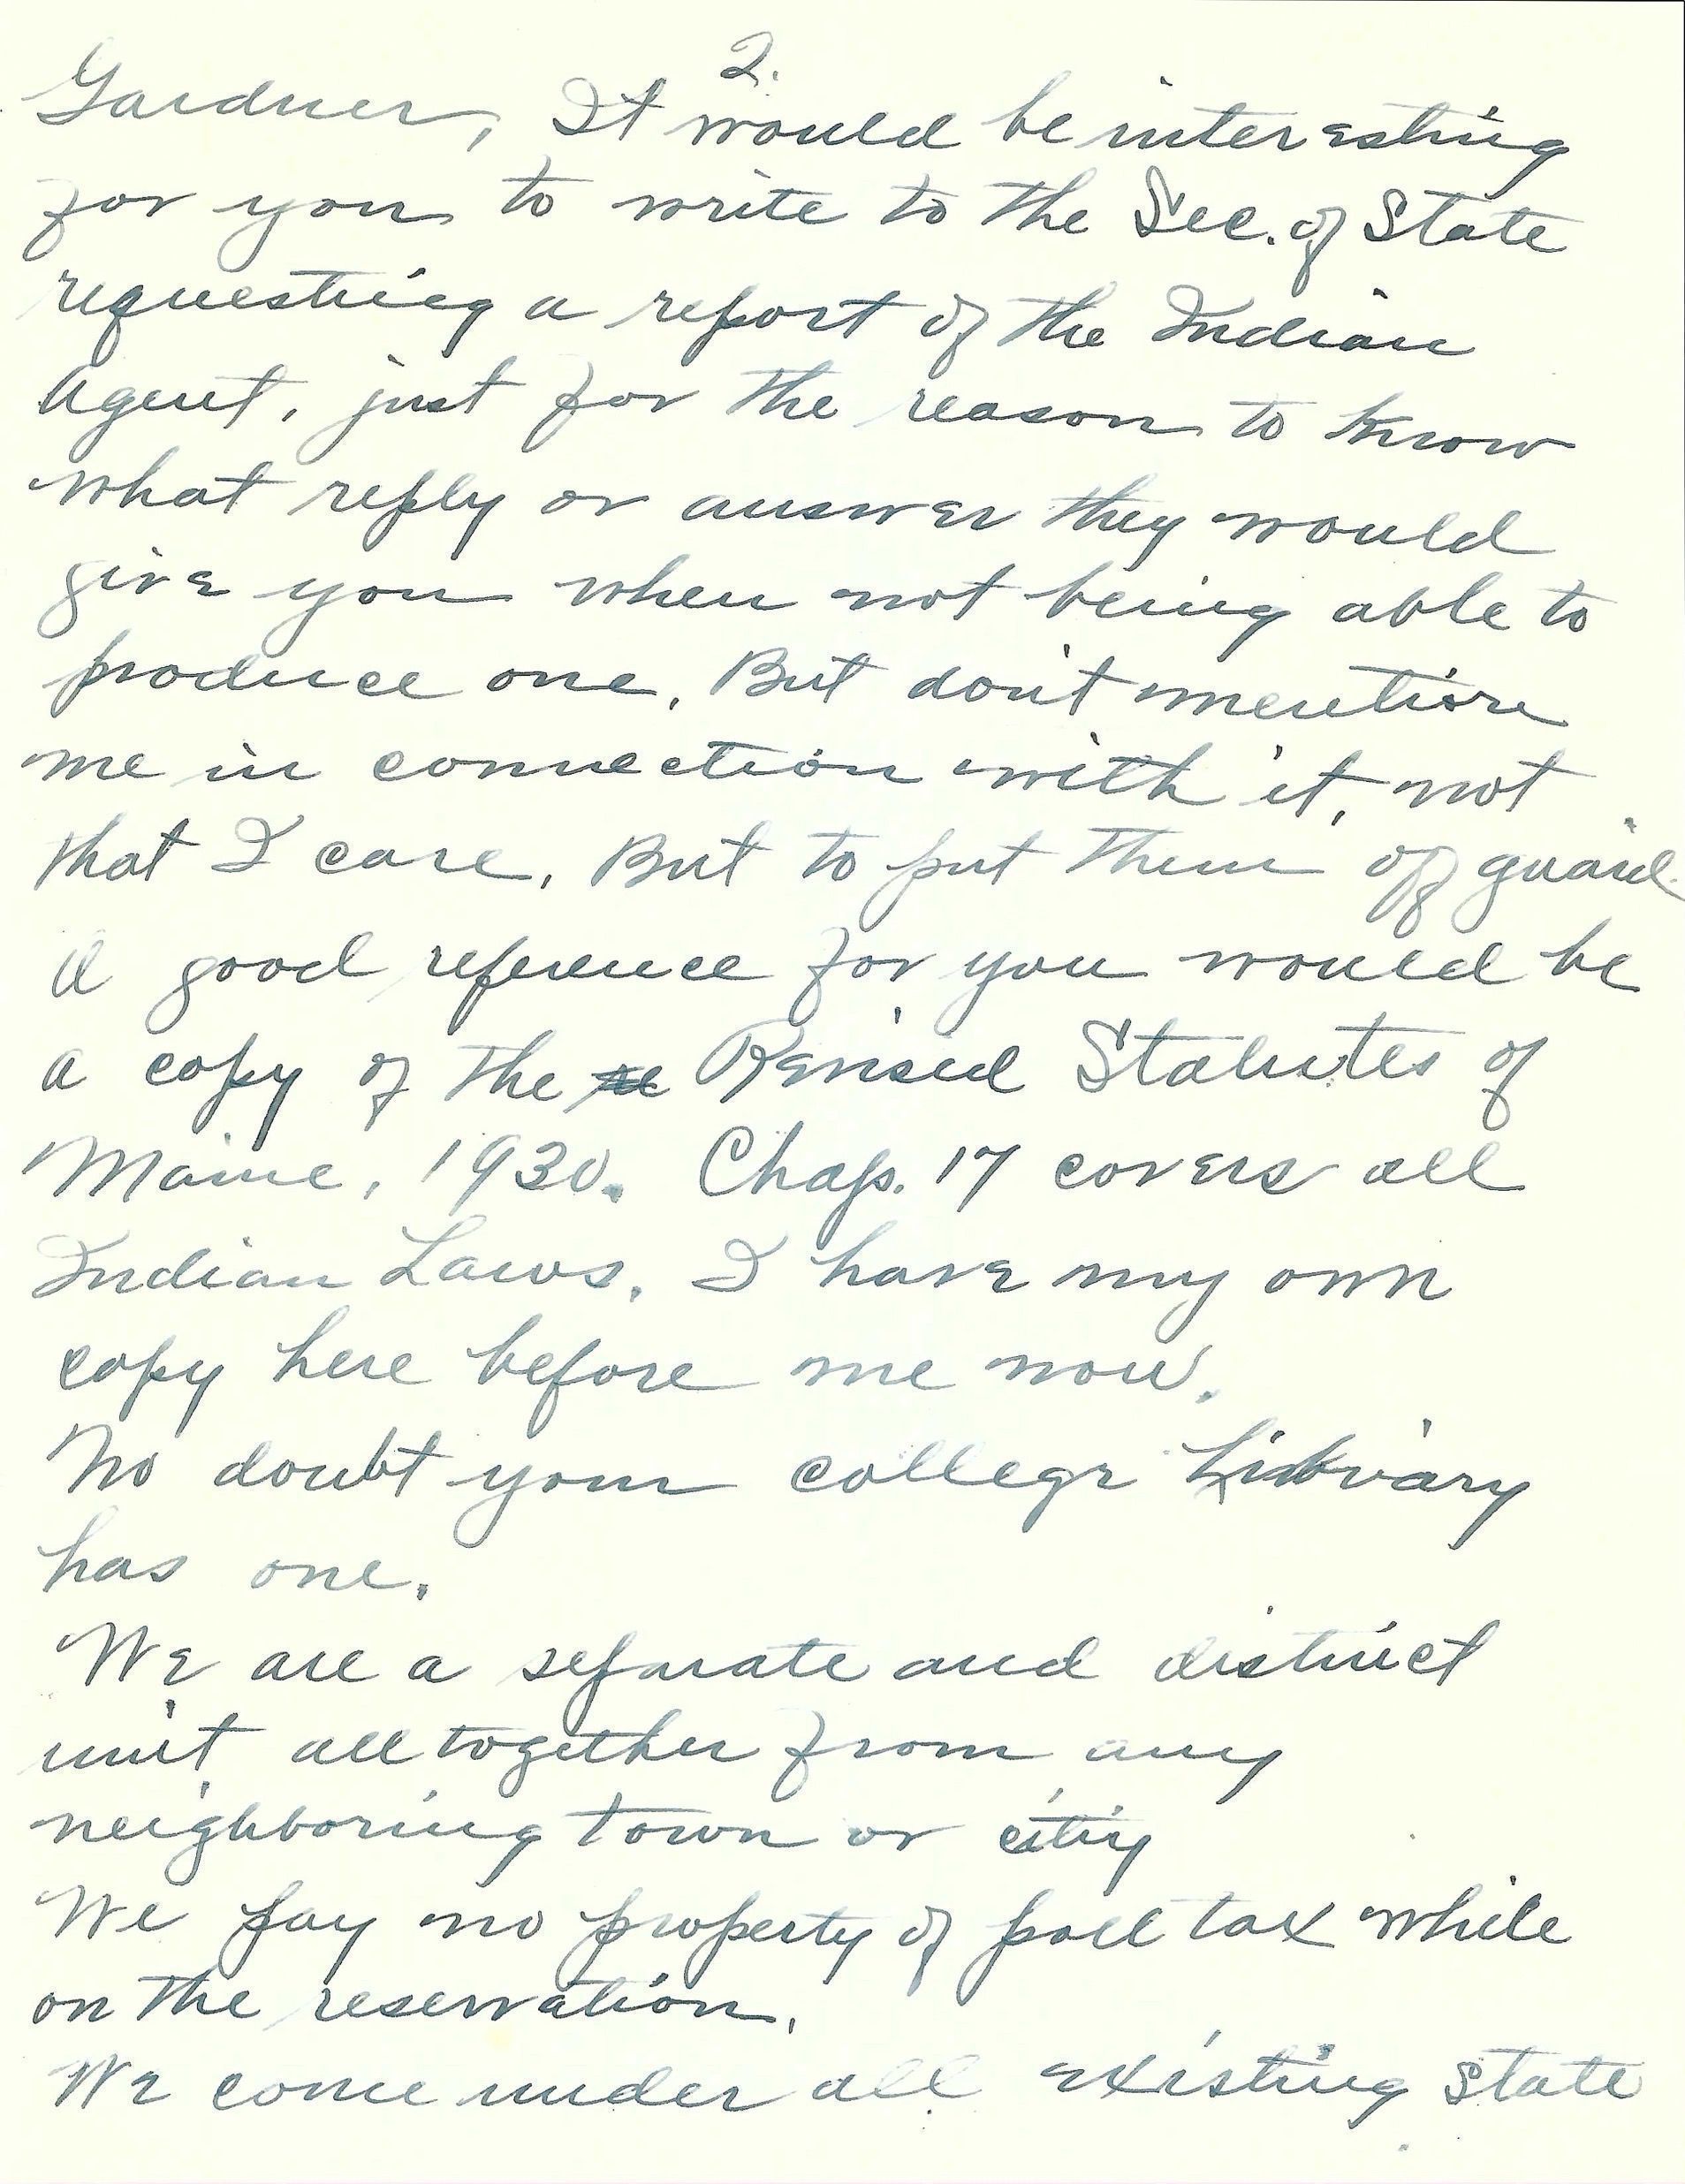 2.
Gardner, It would be interesting
for you to write to the Sec. of State
requesting a report of the Indian
Agent, just for the reason to know
what reply or answer they would
give you when not being able to
produce one, But don't mention
me in connection with it, not
that I care, But to put them off guard.
A good reference for you would be
a copy of the Revised Statutes of
Maine, 1930. Chap. 17 covers all
Indian Laws. I have my own
copy here before me now.
No doubt your college Library
has one.
We are a separate and distinct
unit all together from any
neighboring town or city
We pay no property of poll tax while
on the reservation.
We come under all existing state